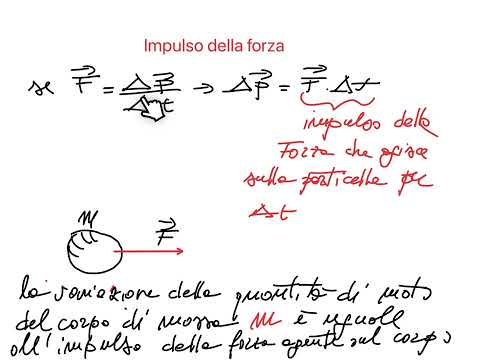 Impulso della forza
se F = Δp / Δt → Δp = F · Δt
impulso della
Forza che agisce
sulla particella per
Δt
m
F
la variazione della quantità di moto
del corpo di massa m è uguale
all'impulso della forza agente sul corpo